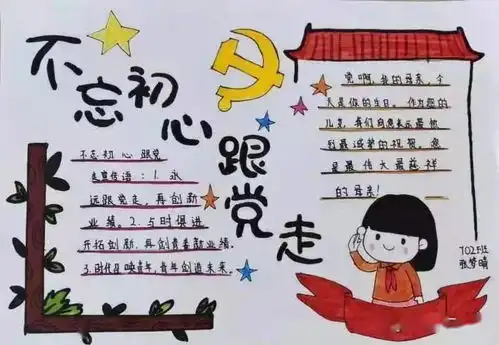 不忘初心
跟党走
不忘初心 跟党
走宣传语：1.永
远跟党走，再创新
业绩。2.与时俱进
开拓创新，再创青春新业绩。
3.时代召唤青年，青年创造未来。
党啊，我的母亲，今
天是你的生日。作为您的
儿女，我们表示最
最诚挚的祝
是最伟大最慈祥
的母亲！
702班